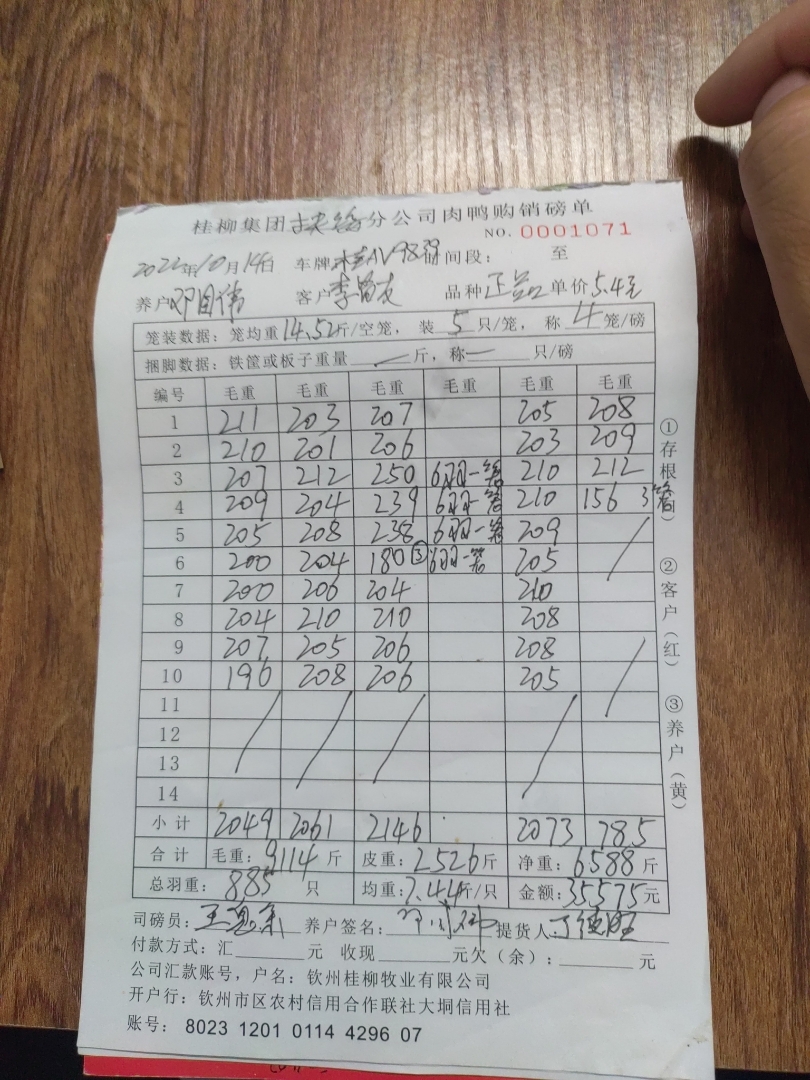 桂柳集团分公司肉鸭购销磅单
NO. 0001071
2022年10月14日 车牌桂AV9839 时间段: 至
养户 客户 品种正品 单价5.4元
笼装数据:笼均重14.52斤/空笼,装5只/笼,称4笼/磅
捆脚数据:铁筐或板子重量 斤,称 只/磅
编号 毛重 毛重 毛重 毛重 毛重 毛重
1 211 203 207 205 208
2 210 201 206 203 209
3 207 212 250 6羽一笼 210 212
4 209 204 239 6羽一笼 210 156 3笼
5 205 208 238 6羽一笼 209
6 200 204 180③ 6羽一笼 205
7 200 206 204 210
8 204 210 210 208
9 207 205 206 208
10 196 208 206 205
11
12
13
14
小计 2049 2061 2146 2073 785
合计 毛重:9114斤 皮重:2526斤 净重:6588斤
总羽重:885只 均重:7.44斤/只 金额:35575元
司磅员: 养户签名: 提货人:
付款方式:汇 元 收现 元欠(余): 元
公司汇款账号,户名:钦州桂柳牧业有限公司
开户行:钦州市区农村信用合作联社大垌信用社
账号: 8023 1201 0114 4296 07
①存根()
②客户(红)
③养户(黄)